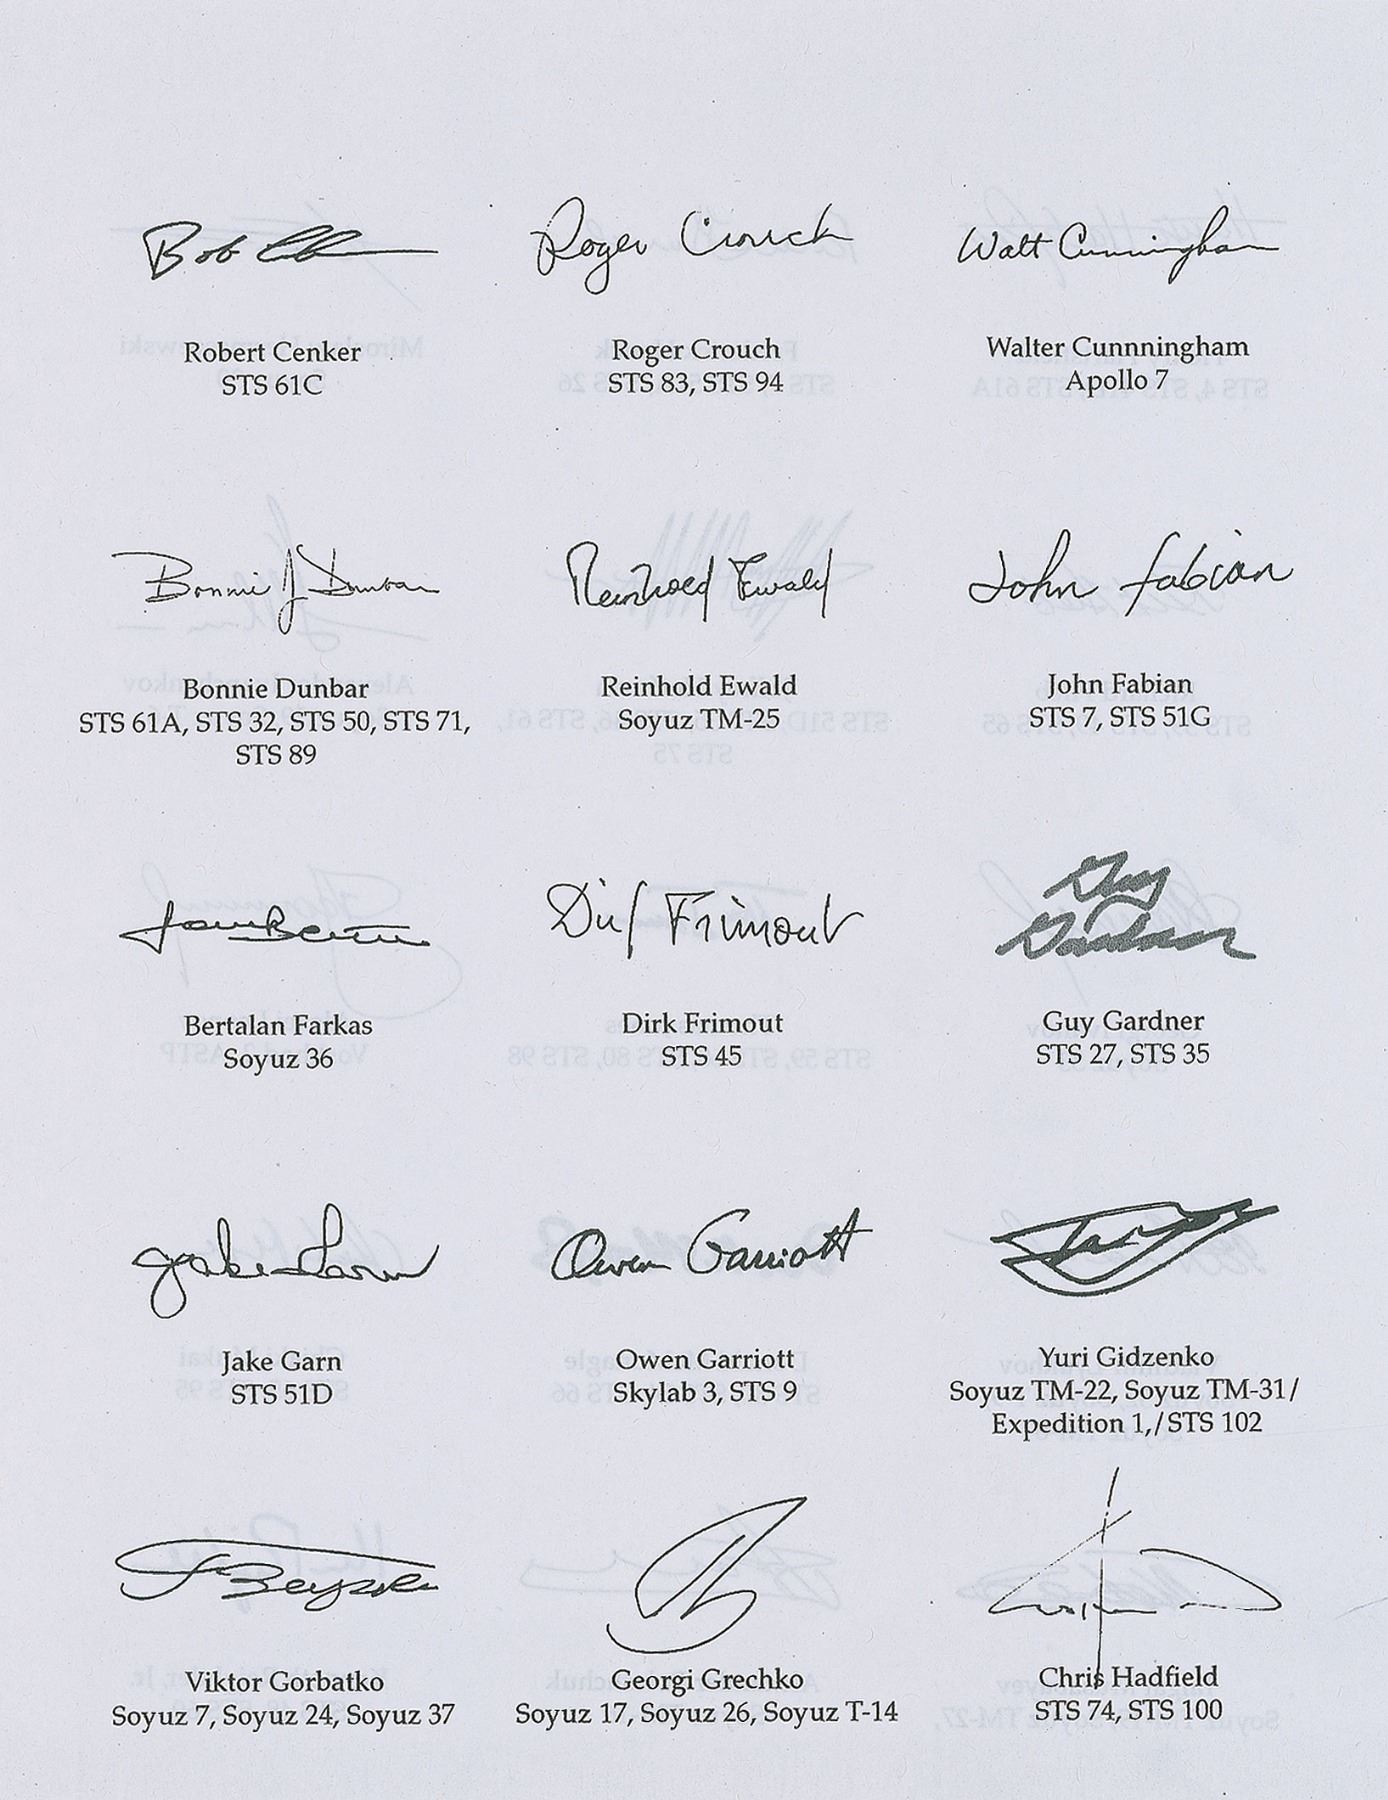 Bob
Roger Crouch
Walt Cunningham
Robert Cenker
STS 61C
Roger Crouch
STS 83, STS 94
Walter Cunnningham
Apollo 7
Bonnie J Dunbar
Reinhold Ewald
John Fabian
Bonnie Dunbar
STS 61A, STS 32, STS 50, STS 71,
STS 89
Reinhold Ewald
Soyuz TM-25
John Fabian
STS 7, STS 51G
Dirk Frimout
Guy
Gardner
Bertalan Farkas
Soyuz 36
Dirk Frimout
STS 45
Guy Gardner
STS 27, STS 35
Jake Garn
Owen Garriott
Jake Garn
STS 51D
Owen Garriott
Skylab 3, STS 9
Yuri Gidzenko
Soyuz TM-22, Soyuz TM-31/
Expedition 1,/STS 102
Viktor Gorbatko
Soyuz 7, Soyuz 24, Soyuz 37
Georgi Grechko
Soyuz 17, Soyuz 26, Soyuz T-14
Chris Hadfield
STS 74, STS 100